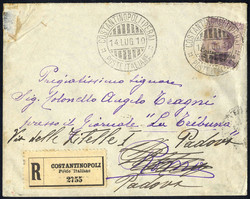 COSTANTINOPOLI (PERA)
14 LUG 10
POSTE ITALIANE
Pregiatissimo Signore
Sig. Colonnello Angelo
presso il Giornale "La Tribuna"
Via delle Zitelle 1 Padova
Roma
Padova
R
COSTANTINOPOLI
Poste Italiane
2755